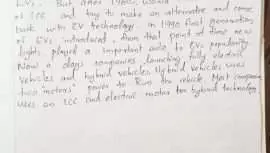 EVs. But after 1960s, world
of ICE and try to make an alternative and come
back with EV technology. In 1990 first generation
of EVs introduced, from that point of time new
lights played a important role to EVs popularity
Now a days companies launching fully electric
vehicles and hybrid vehicles. Hybrid vehicles uses
two "motors" power to Run the vehicle. Most companies
uses an ICE and electric motor for hybrid technology.